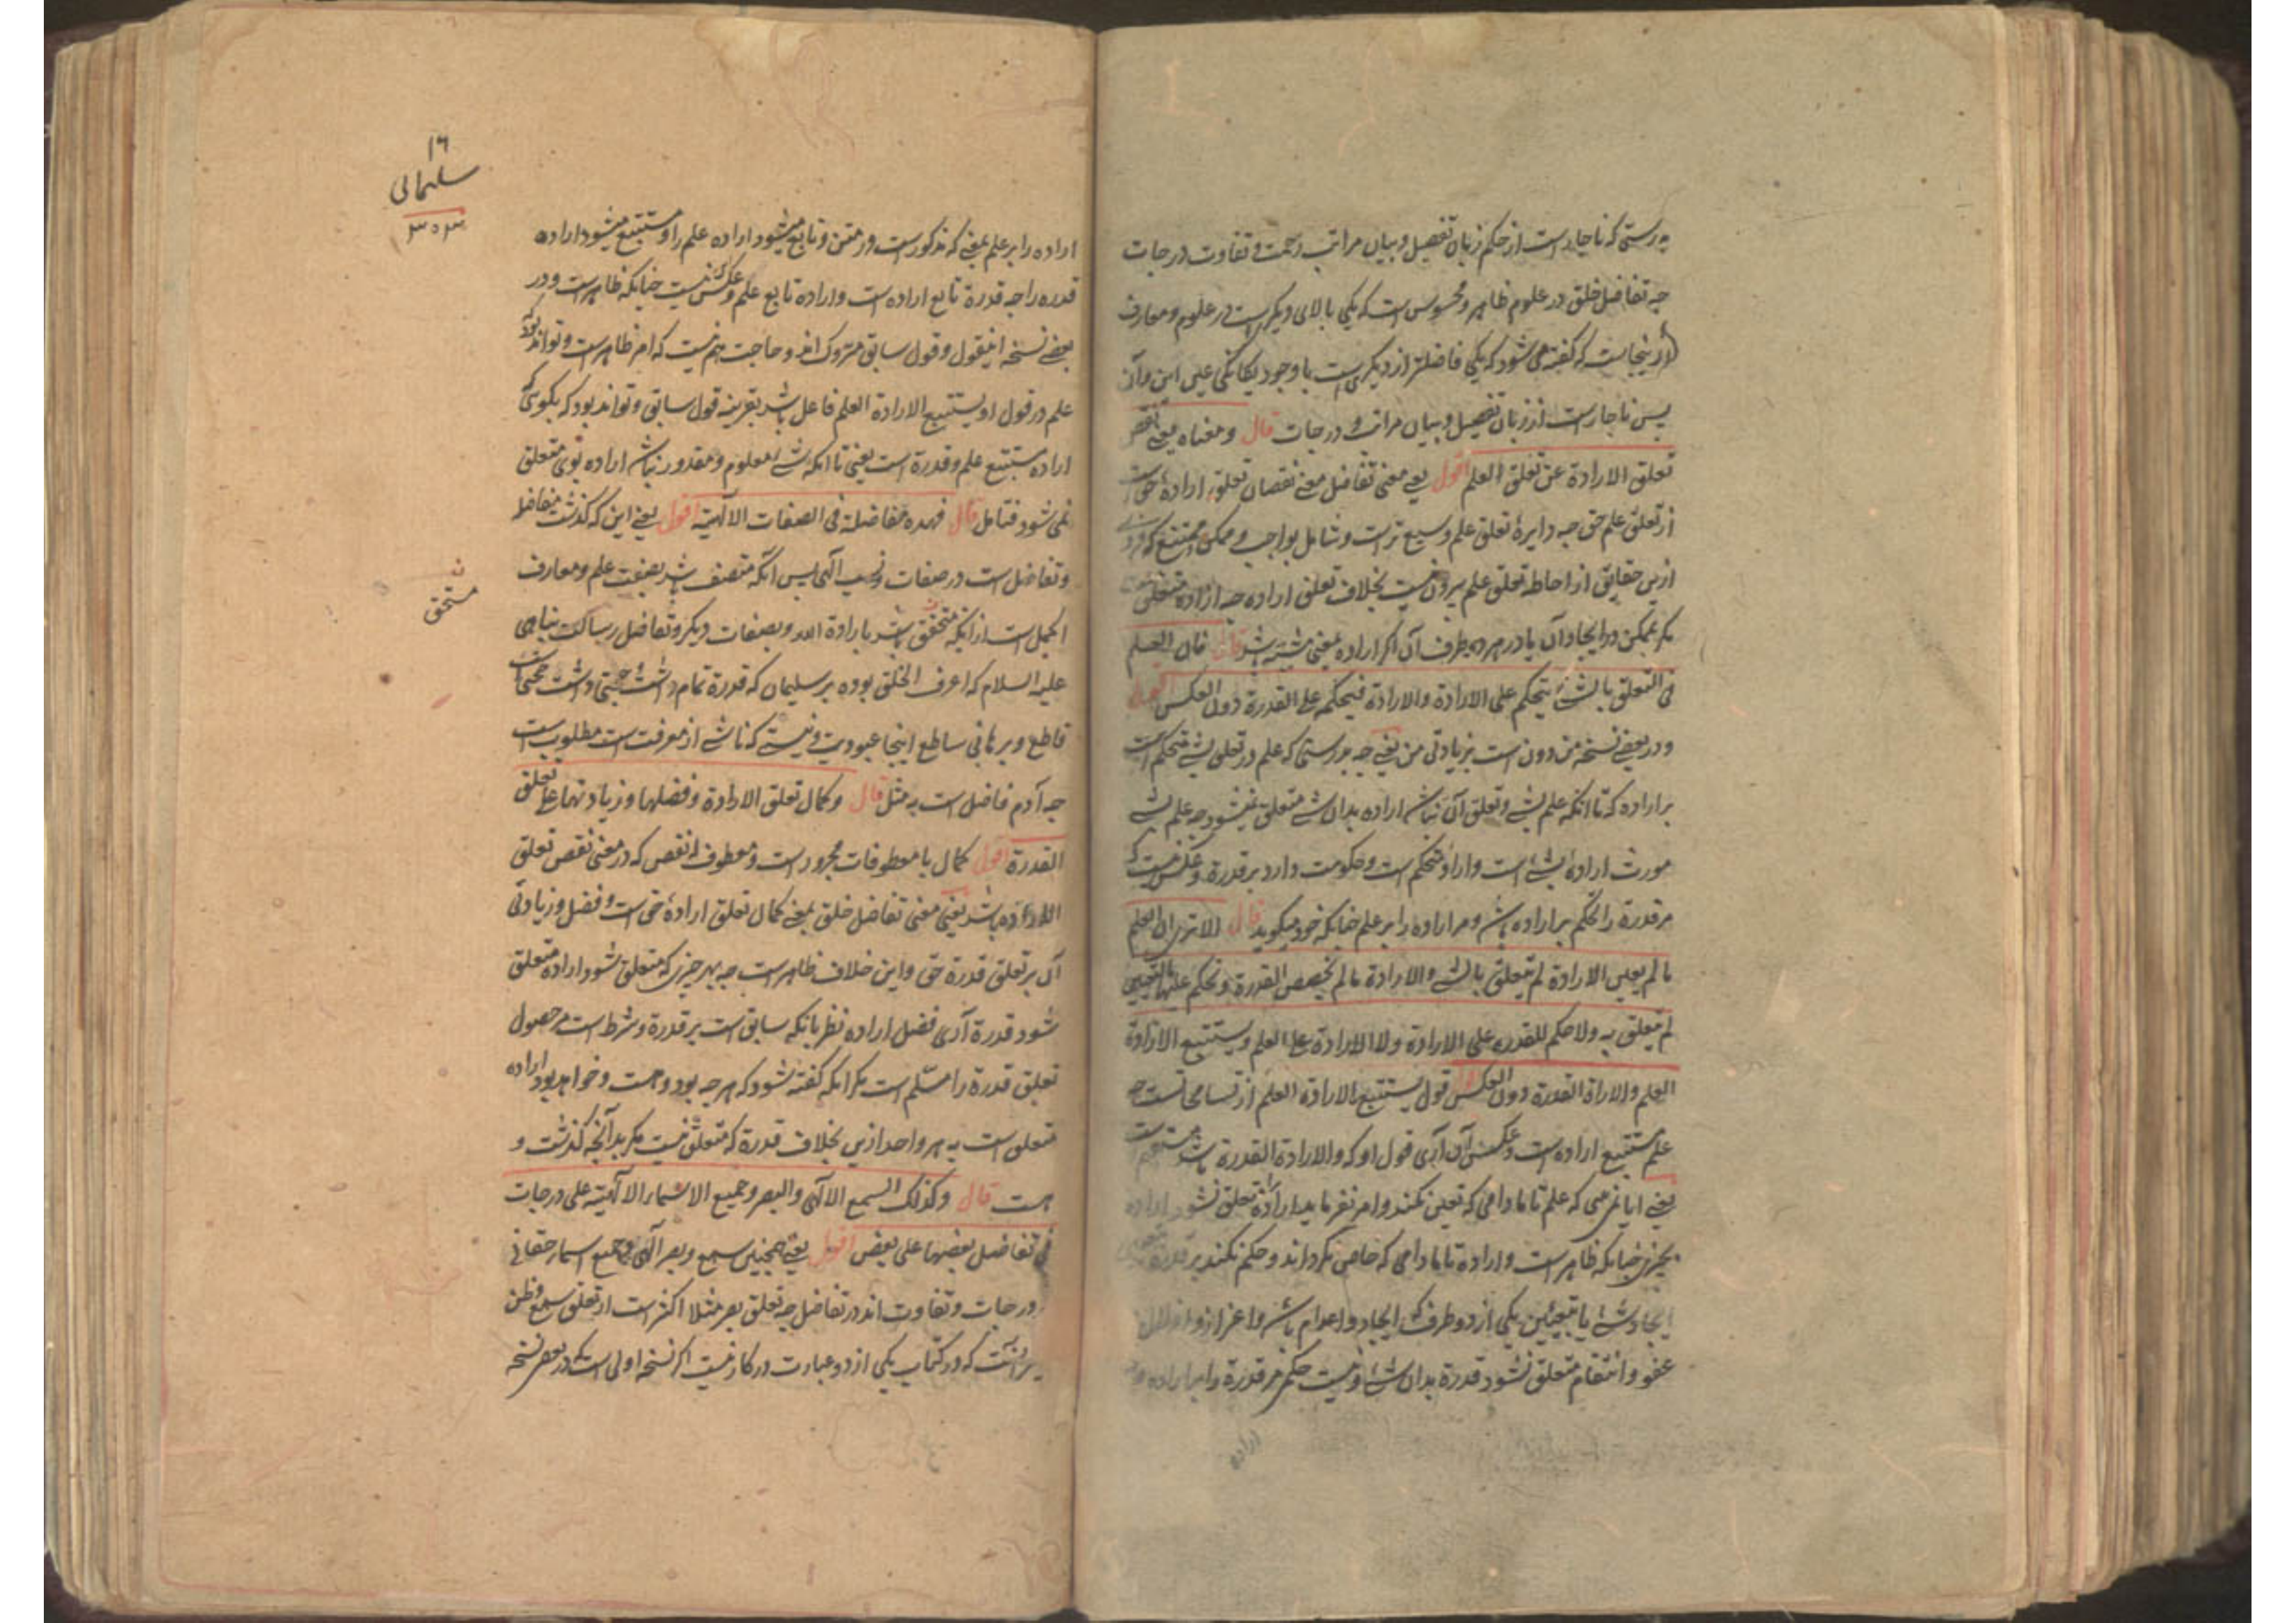 بدرستی که ناچار است از حکم زبان تفصیل و بیان مراتب رحمت و تفاوت درجات
چه تفاضل خلق در علوم ظاهر و محسوس است که یکی بالای دیگری است در علوم و معارف
ازینجاست که گفته می شود که یکی فاضلتر از دیگری است با وجود یکانکی عین این و آن
پس ناچار است از زبان تفصیل و بیان مراتب و درجات قال و معناه یعنی نقص
تعلق الارادة عن تعلق العلم اقول یعنی معنی تفاضل معنی نقصان تعلق ارادهٔ حق است
از تعلق علم حق چه دایرهٔ تعلق علم وسیع تر است و شامل بواجب و ممکن و ممتنع که فردی
ازین حقایق از احاطهٔ تعلق علم بیرون نیست بخلاف تعلق اراده چه اراده متعلق
مکر بممکن در ایجاد آن یا در هر دو طرف آن اکر اراده بمعنی مشیة باشد قال فان العلم
فی التعلق بالشئ یتحکم علی الارادة والارادة فیتحکم علی القدرة دون العکس اقول
و در بعضی نسخه من دون است بزیادتی من یعنی چه بدرستی که علم در تعلق بشئ متحکم است
بر اراده که تا آنکه علم بشئ و تعلق آن نباشد اراده بدان شئ متعلق نمیشود چه علم بشئ
مورث ارادهٔ شئ است و اراده متحکم است و حکومت دارد بر قدرة و عکس نیست که
مر قدرة را تحکم بر اراده باشد و مر اراده را بر علم چنانکه خود میکوید قال الا تری ان العلم
ما لم یعین الارادة لم یتعلق بالشئ والارادة ما لم یخصص القدرة و تحکم علیها بالتعیین
لم یتعلق به ولا حکم للقدرة علی الارادة ولا الارادة علی العلم و یستتبع الارادة
العلم والاراة القدرة دون العکس قول یستتبع الارادة العلم از تسامحات است چه
علم مستتبع اراده است و عکس آن آری قول او که والارادة القدرة باشد
یعنی ایا نمی بینی که علم تا مادامی که تعین نکند و امر نفرماید اراده تعلق نشود اراده
بچیزی چنانکه ظاهر است و اراده تا مادامی که خاص نکرداند و حکم نکند بر قدرة
ایجاد شئ یا بتعیین یکی از دو طرف که ایجاد و اعدام باشد و اعزاز و اذلال
عفو و انتقام متعلق نشود قدرة بدان شئ و نیست حکم مر قدرة را بر اراده
اراده
۱۶
سلیمانی
۳۵۳
اراده را بر علم بمعنی که مذکور است در متن و تابع میشود اراده علم را و مستتبع میشود اراده
قدره را چه قدرة تابع اراده است و اراده تابع علم و عکس نیست چنانکه ظاهر است و در
بعضی نسخه اینقول و قول سابق متروک اند و حاجت هم نیست که امر ظاهر است و تواند بود که
علم در قول او یستتبع الارادة العلم فاعل باشد بقرینه قول سابق و تواند بود که بکوئی که
اراده مستتبع علم و قدرة است یعنی تا آنکه شئ معلوم و مقدور نباشد اراده بوی متعلق
نمی شود فتامل قال فهذه مفاضلة فی الصفات الالهیة اقول یعنی این که کذشت مفاضله
و تفاضل است در صفات و نسب الهی پس آنکه متصف باشد بصفت علم و معارف
اکمل است از انکه متحقق باشد بارادة الله و بصفات دیکر و تفاضل رسالت پناهی
ن
مستحق
علیه السلام که اعرف الخلق بوده بر سلیمان که قدرة تمام داشت حجتی داشت
قاطع و برهانی ساطع اینجا عبودیت و نیستی که ناشی از معرفت است مطلوب است
چه آدم فاضل است به مثل قال و کمال تعلق الارادة و فضلها و زیادتها علی تعلق
القدرة اقول کمال با معطوفات مجرور است و معطوف بر نقص که در معنی نقص تعلق
الاراده باشد یعنی معنی تفاضل خلق بمعنی کمال تعلق ارادهٔ حق است و فضل و زیادتی
آن بر تعلق قدرة حق و این خلاف ظاهر است چه بهر چیزی که متعلق شود اراده متعلق
شود قدرة آری فضل اراده نظر بانکه سابق است بر قدرة و شرط است مر حصول
تعلق قدرة را مسلم است مکر آنکه کفته شود که هر چه بود و هست و خواهد بود اراده
متعلق است به هر واحد ازین بخلاف قدرة که متعلق نیست مکر بدانچه کذشت و
هست قال و کذلک السمع الالهی والبصر و جمیع الاسماء الالهیة علی درجات
فی تفاضل بعضها علی بعض اقول یعنی همچنین سمع و بصر الهی و جمیع اسماء حقانی
بر درجات و تفاوت اند در تفاضل چه تعلق بصر مثلا اکثر است از تعلق سمع و ظن
آنست که در کتاب یکی از دو عبارت در کار نیست اکر نسخه اولی است که در بعض نسخه